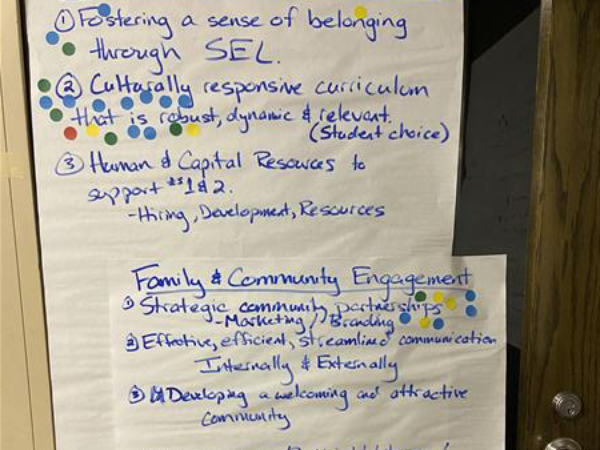 ① Fostering a sense of belonging
through SEL.
② Culturally responsive curriculum
that is robust, dynamic & relevant.
(Student choice)
③ Human & Capital Resources to
support #s 1 & 2.
- Hiring, Development, Resources
Family & Community Engagement
① Strategic community partnerships
- Marketing / Branding
② Effective, efficient, streamlined communication
Internally & Externally
③ Developing a welcoming and attractive
community